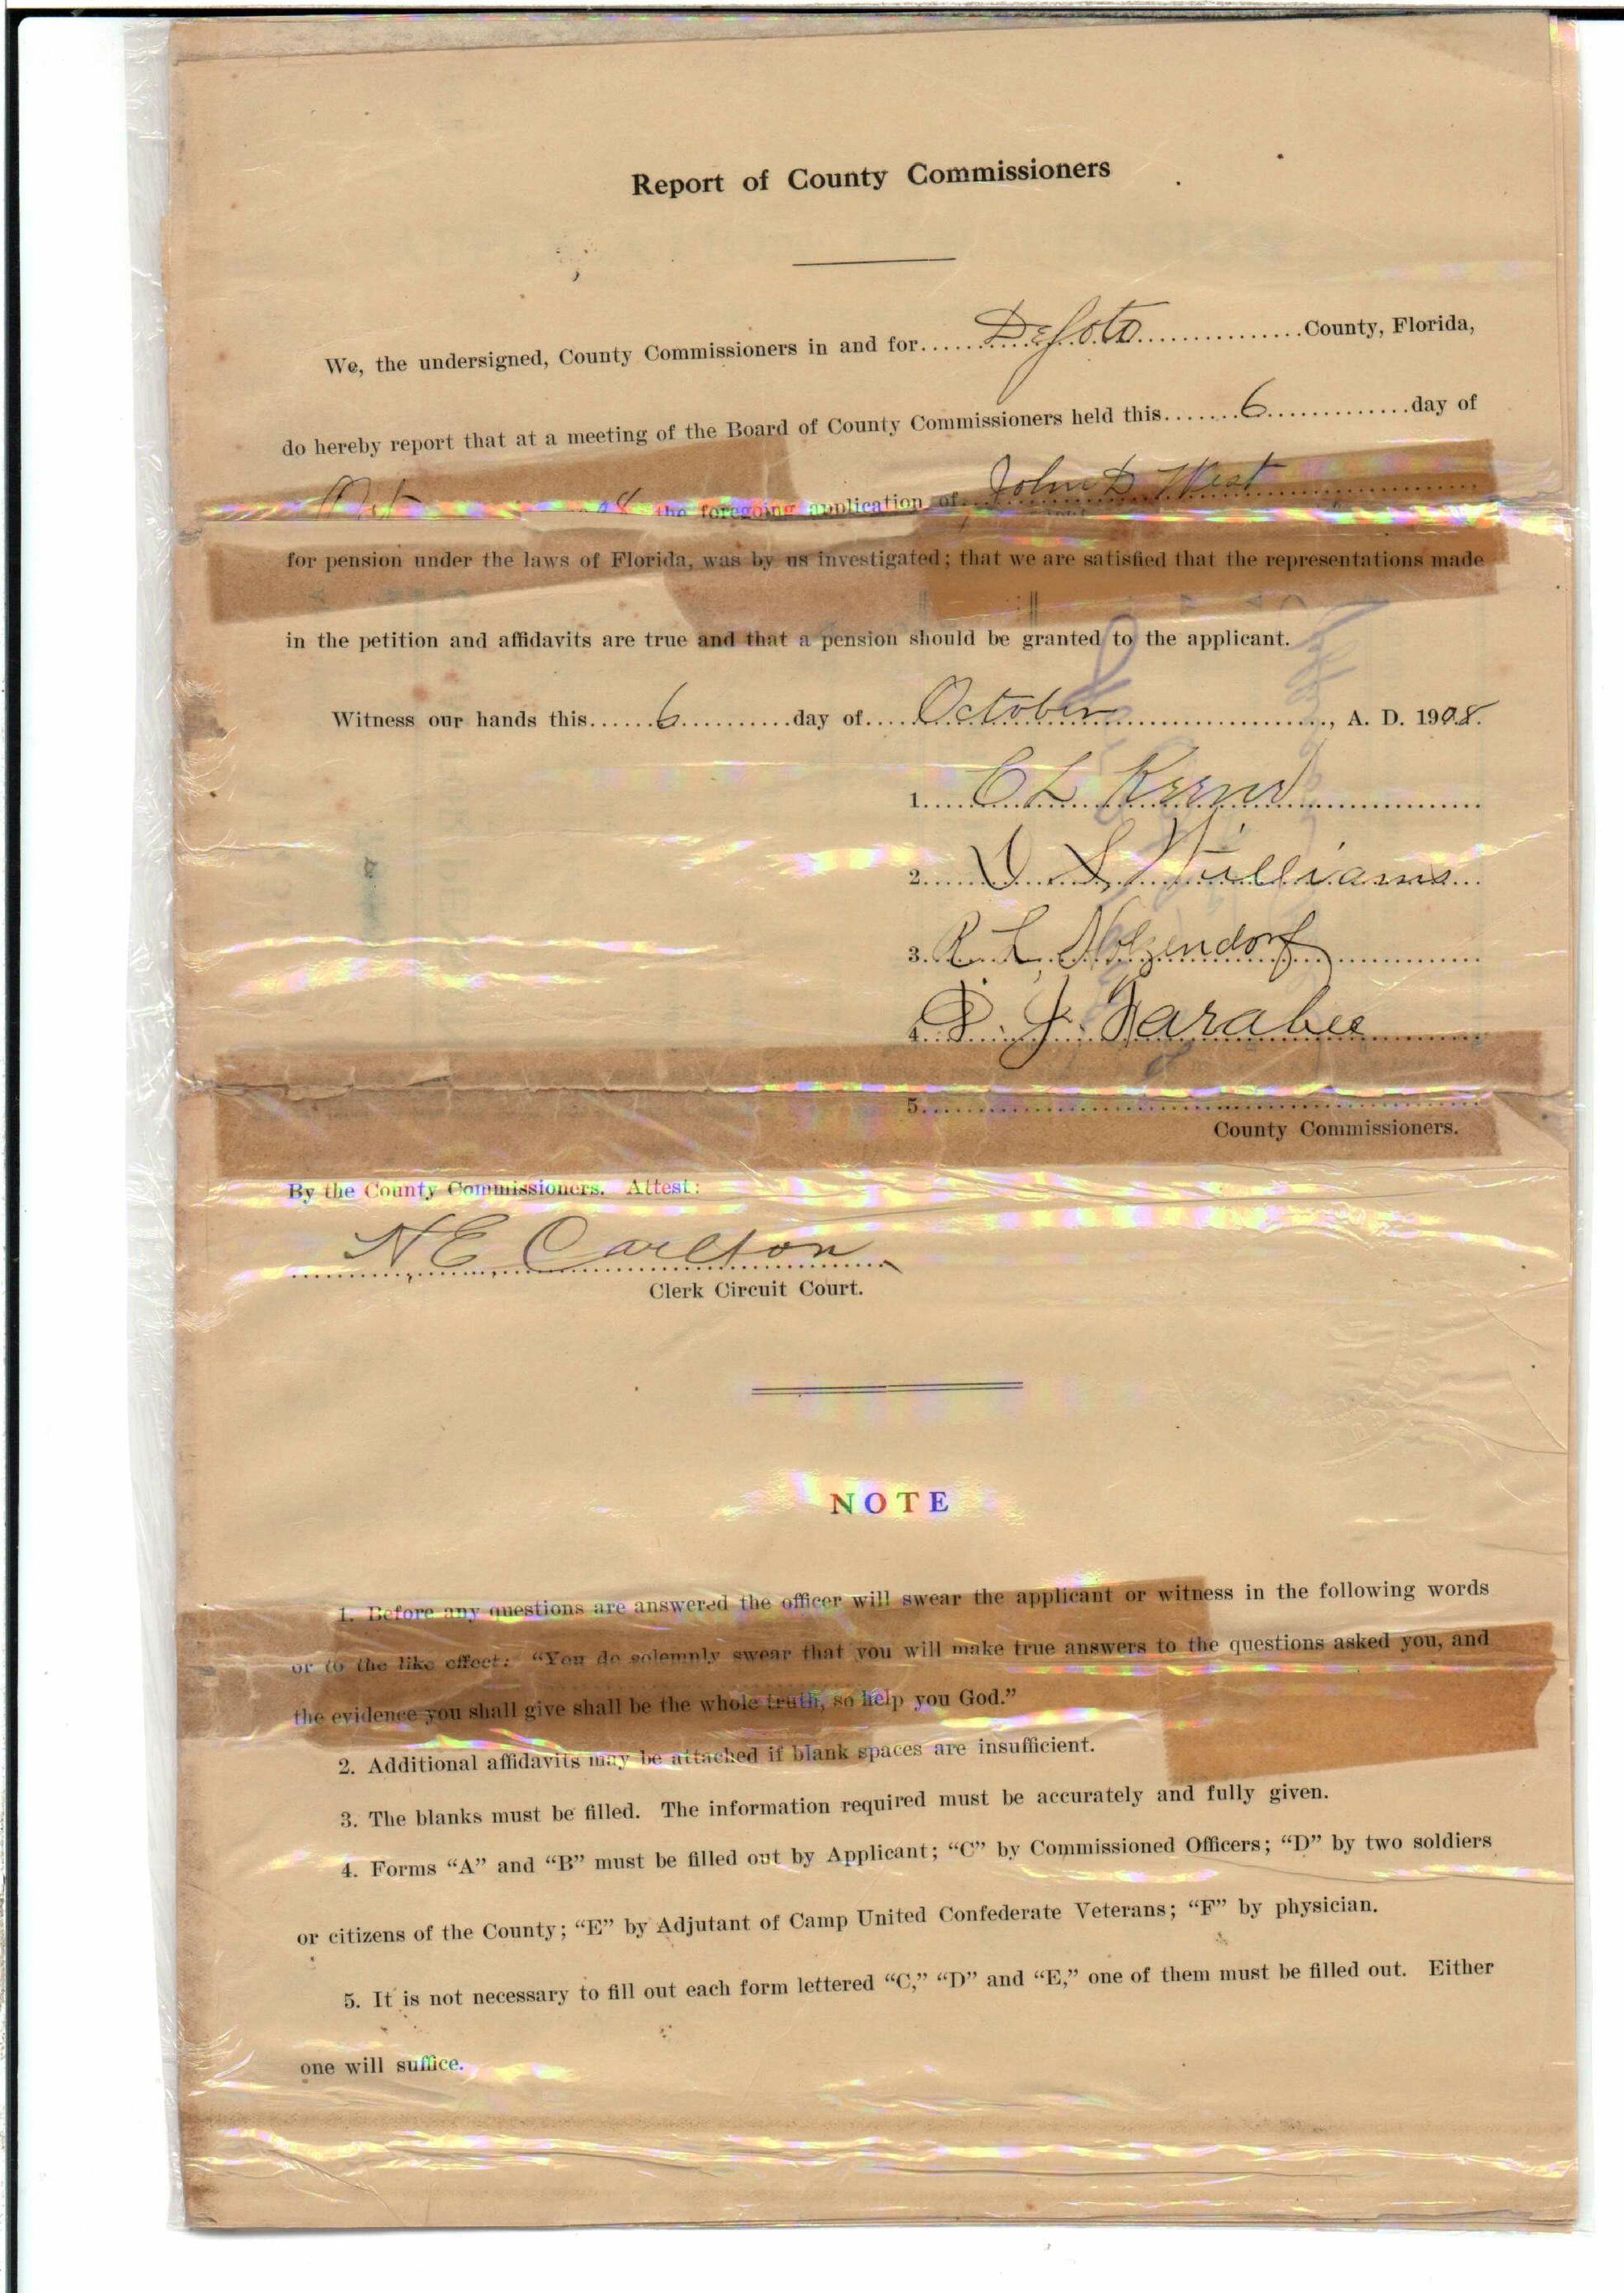 Report of County Commissioners
We, the undersigned, County Commissioners in and for DeSoto County, Florida,
do hereby report that at a meeting of the Board of County Commissioners held this 6 day of
Oct 08 the foregoing application of John D West
for pension under the laws of Florida, was by us investigated; that we are satisfied that the representations made
in the petition and affidavits are true and that a pension should be granted to the applicant.
Witness our hands this 6 day of October, A. D. 1908.
1. C L
2. Williams
3. R. L.
4. J.
5.
County Commissioners.
By the County Commissioners. Attest:
N E Carlton
Clerk Circuit Court.
NOTE
1. Before any questions are answered the officer will swear the applicant or witness in the following words
or to the like effect: “You do solemnly swear that you will make true answers to the questions asked you, and
the evidence you shall give shall be the whole truth, so help you God.”
2. Additional affidavits may be attached if blank spaces are insufficient.
3. The blanks must be filled. The information required must be accurately and fully given.
4. Forms “A” and “B” must be filled out by Applicant; “C” by Commissioned Officers; “D” by two soldiers
or citizens of the County; “E” by Adjutant of Camp United Confederate Veterans; “F” by physician.
5. It is not necessary to fill out each form lettered “C,” “D” and “E,” one of them must be filled out. Either
one will suffice.